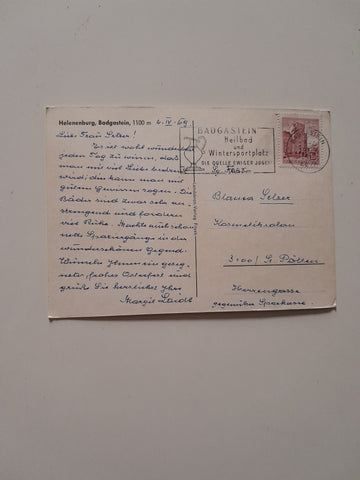 Helenenburg, Badgastein, 1100 m 4. IV. 69
Lieb. Frau Selzer!
Es ist wohl wunderschön
jeden Tag zu wissen, daß
man mit viel Liebe
wird; die kann man mit
gutem Gewissen sagen. Die
Bäder sind zwar sehr an-
strengend und fordern
viel Ruhe. Machte auch schon
nette Spaziergänge in der
wunderschönen Gegend.
Wünsche Ihnen ein geseg-
netes, frohes Osterfest und
grüße Sie herzlichst Ihre
Margit Laidl
BADGASTEIN
Heilbad
und
Wintersportplatz
DIE QUELLE EWIGER JUGEND
Bianca Selzer
Kosmetiksalon
3100/ St. Pölten
Herrengasse
gegenüber Sparkasse.